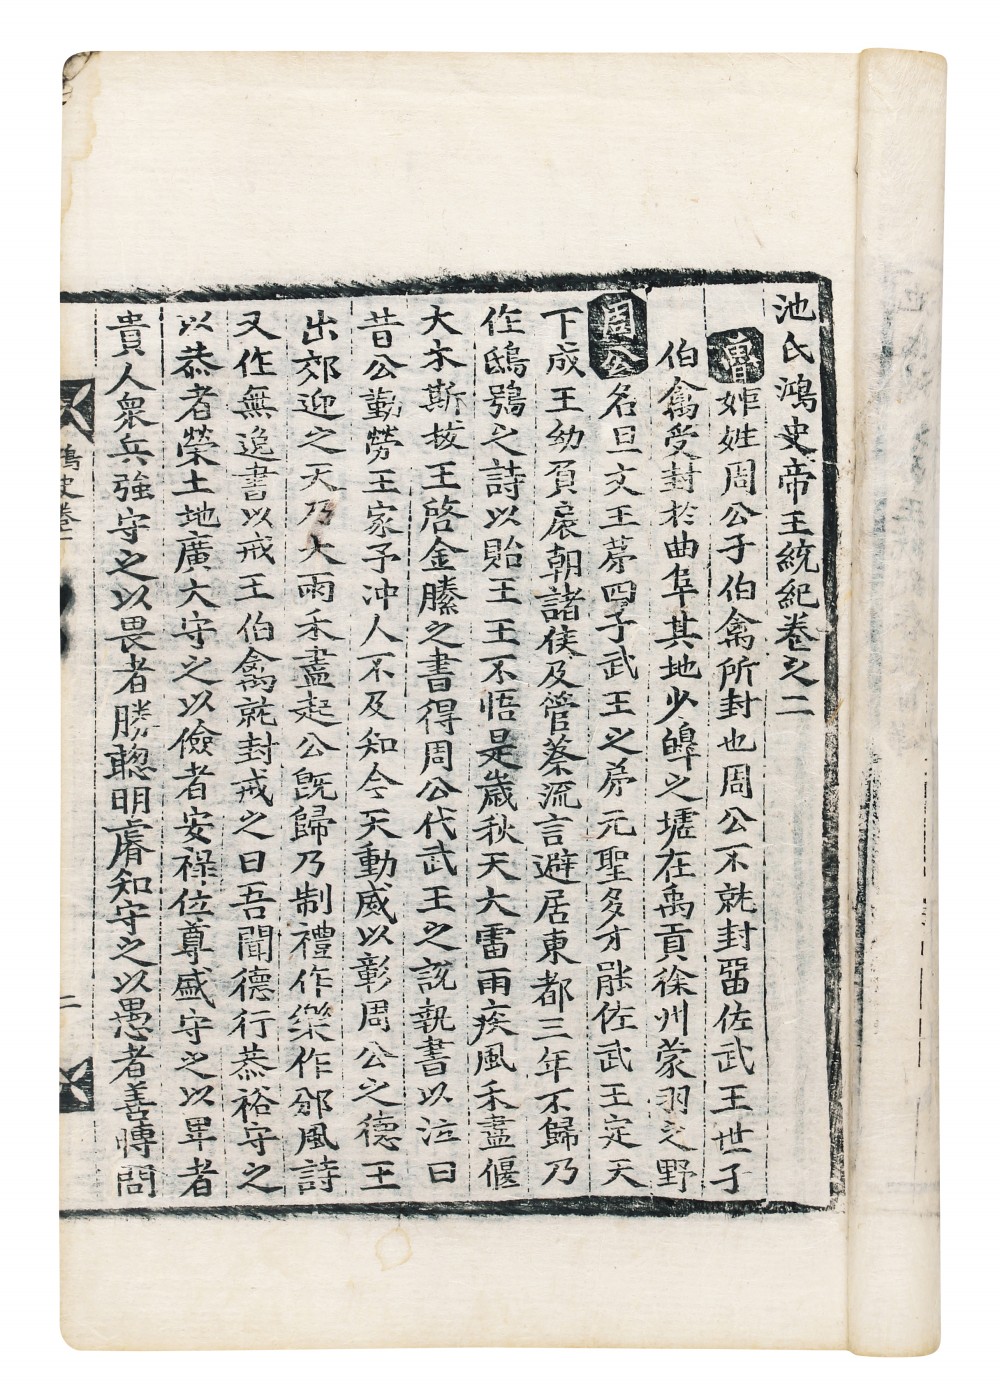 池氏鴻史帝王統紀卷之二
魯姬姓周公子伯禽所封也周公不就封留佐武王世子
伯禽受封於曲阜其地少皥之墟在禹貢徐州蒙羽之野
周公名旦文王苐四子武王之苐元聖多才能佐武王定天
下成王幼負扆朝諸侯及管蔡流言避居東都三年不歸乃
作鴟鴞之詩以貽王王不悟是歲秋天大雷雨疾風禾盡偃
大木斯拔王啓金縢之書得周公代武王之說執書以泣曰
昔公勤勞王家予冲人不及知今天動威以彰周公之德王
出郊迎之天乃大雨禾盡起公旣歸乃制禮作樂作邠風詩
又作無逸書以戒王伯禽就封戒之曰吾聞德行恭裕守之
以恭者榮土地廣大守之以儉者安祿位尊盛守之以畢者
貴人衆兵強守之以畏者勝聦明睿知守之以愚者善愽問
鴻史卷二
二